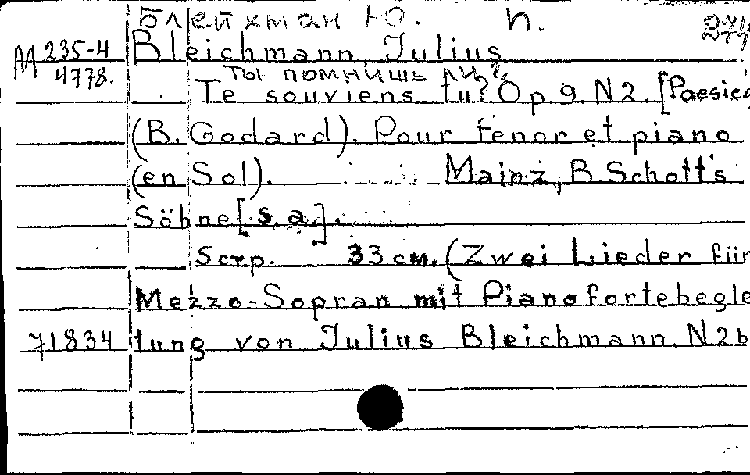 Блейхман Ю. п.
М 235-4 Bleichmann, Julius
4778. Ты помнишь ли?
Te souviens tu? Op 9. N2. [Paesie
(B. Godard). Pour tenor et piano
(en Sol). Mainz, B. Schott's
Söhne [s. a.].
5 стр. 33 см. (Zwei Lieder für
Mezzo-Sopran mit Pianofortebegle
71834 tung von Julius Bleichmann. N2b